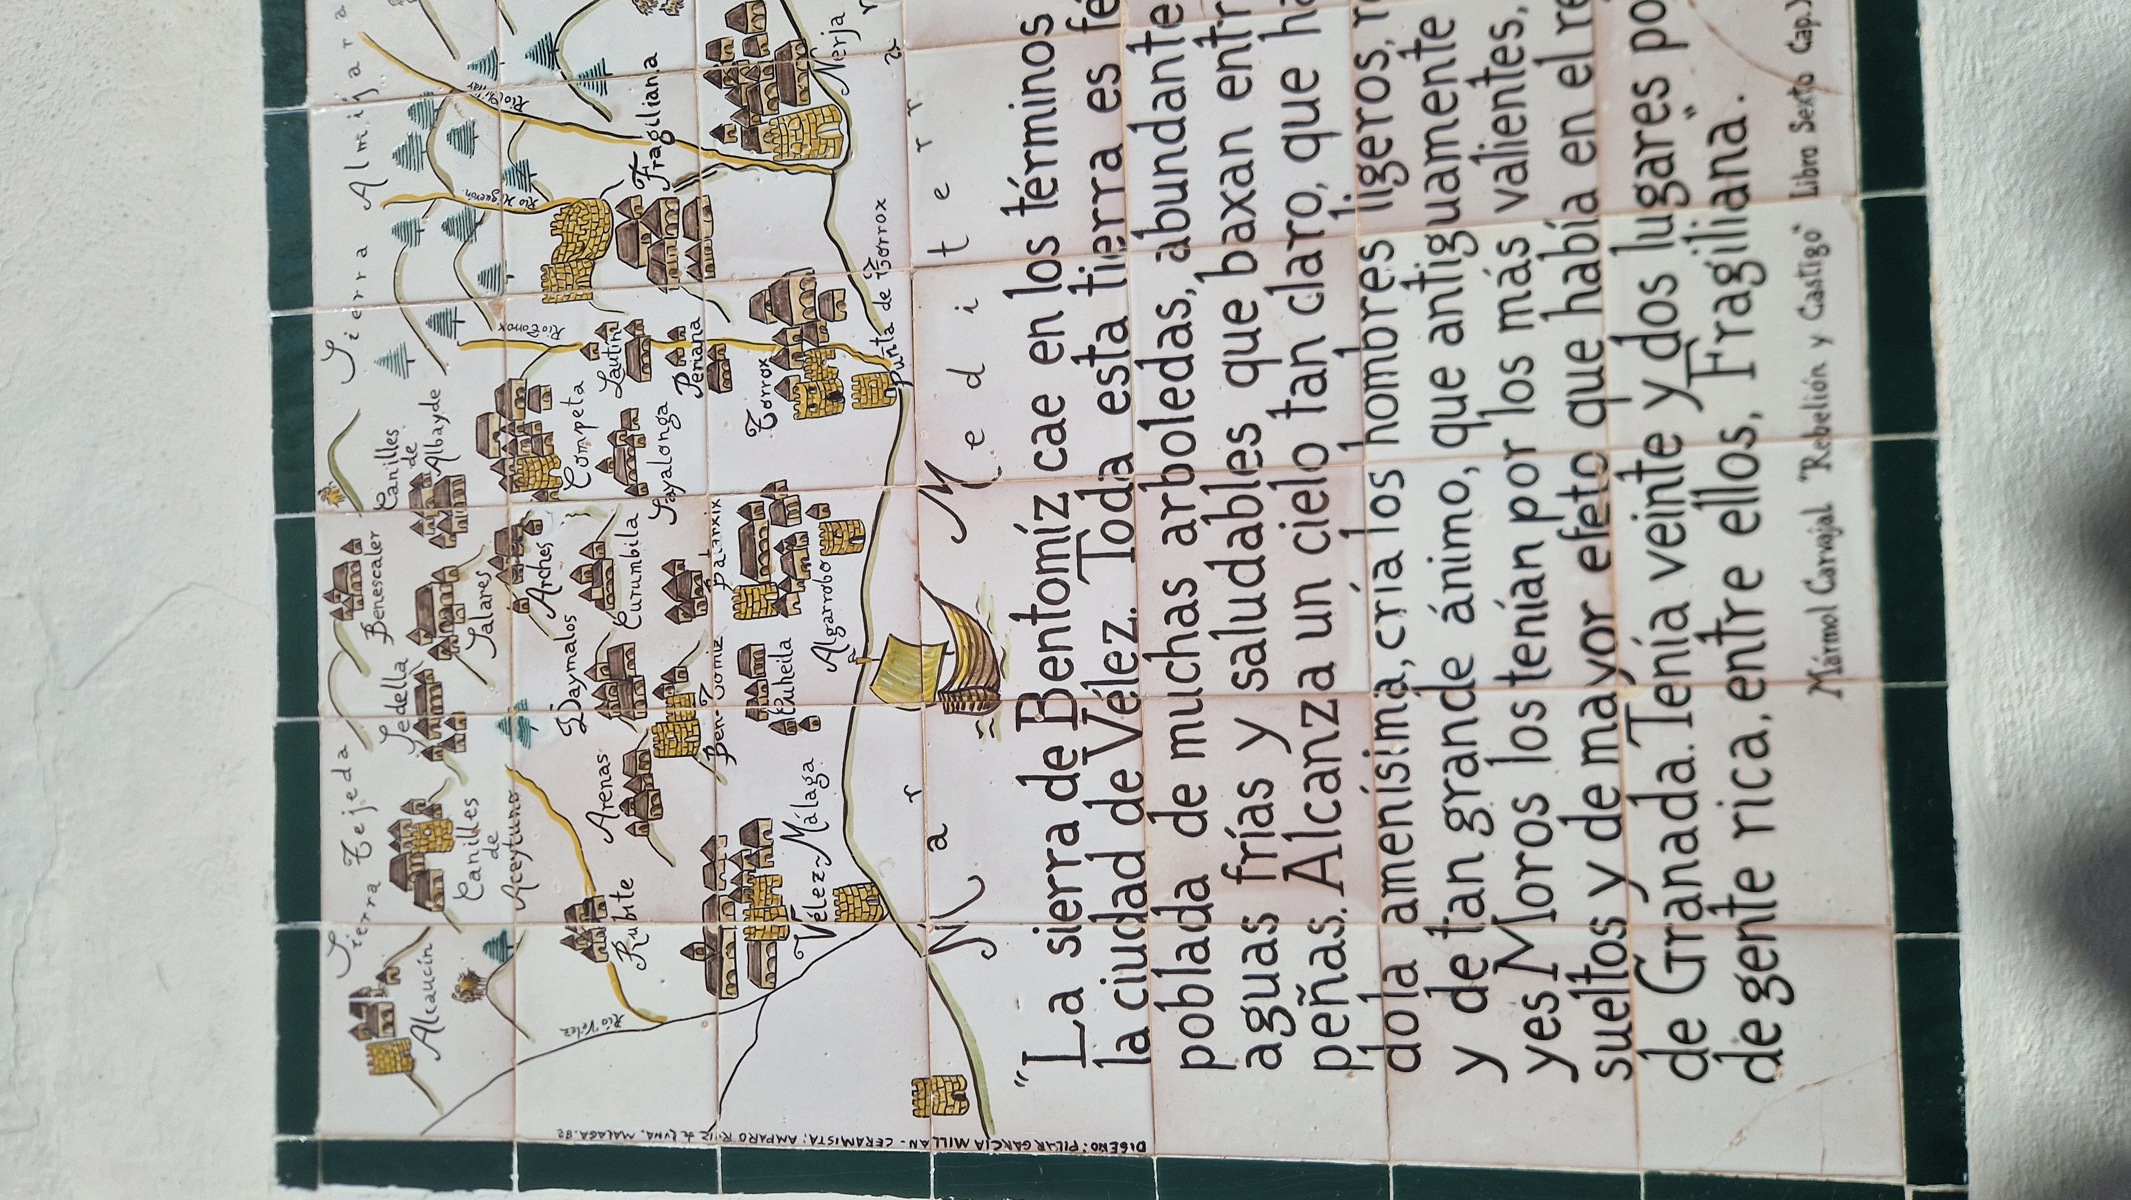 Sierra Tejeda
Sierra Almijara
Alcaucín
Canilles
de
Aceytuno
Sedella
Benescaler
Salares
Canilles
de
Albayde
Arches
Competa
Lautin
Periana
Río Torrox
Río Higuerón
Río Chíllar
Fragiliana
Nerja
Daymalos
Curumbila
Sayalonga
Arenas
Rubite
Río Vélez
Ben-Tomiz
Batarxix
Torrox
Punta de Torrox
Vélez-Málaga
Algarrobo
Mar Mediterr
"La sierra de Bentomíz cae en los términos
la ciudad de Vélez. Toda esta tierra es
poblada de muchas arboledas, abundante
aguas frías y saludables que baxan
peñas. Alcanza un cielo tan claro, que
dola amenísima, cría los hombres ligeros,
y de tan grande ánimo, que antiguamente
yes Moros los tenían por los más valientes,
sueltos y de mayor efeto que había en el
de Granada. Tenía veinte y dos lugares
de gente rica, entre ellos, Fragiliana".
Mármol Carvajal "Rebelión y Castigo" Libro Sexto Cap.
DISEÑO: PILAR GARCÍA MILLÁN - CERAMISTA: AMPARO RUIZ de LUNA. MALAGA-82